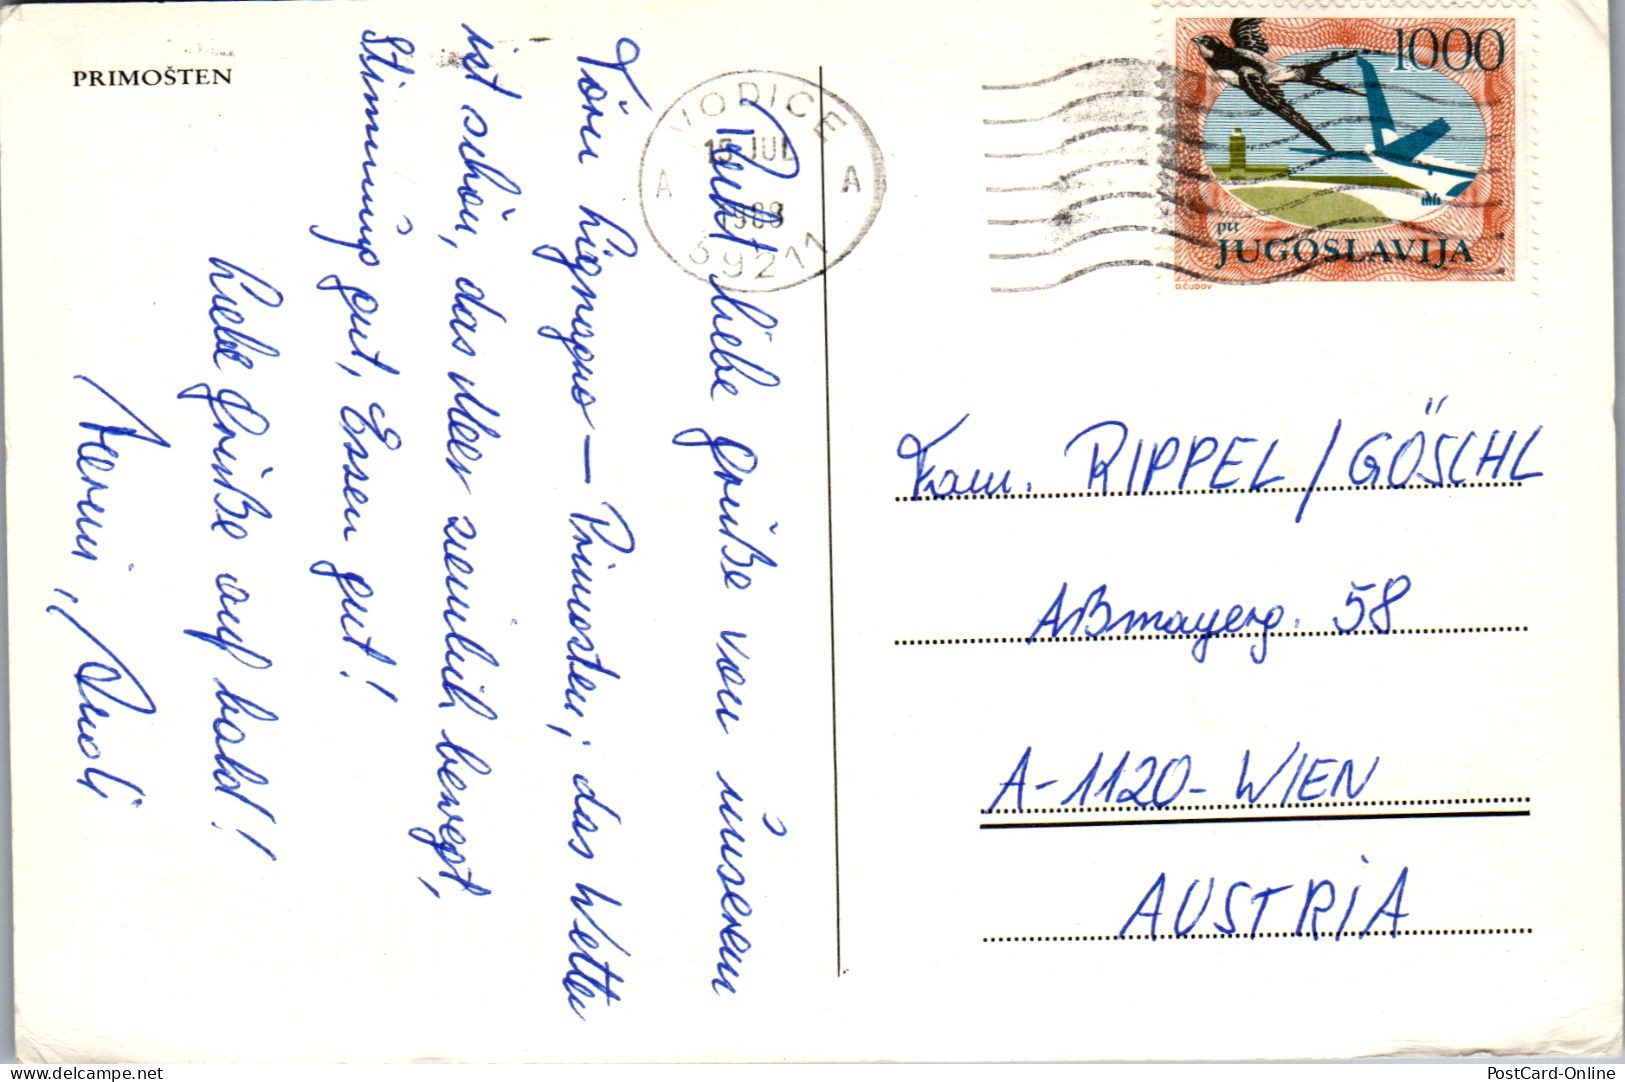 PRIMOŠTEN
VODICE
15 JUL
1988
A A
59211
1000
ptt
JUGOSLAVIJA
D.ČUDOV
Recht liebe Grüße von unserem
Törn Lignano - Primosten; das Wetter
ist schön, das Meer ziemlich bewegt,
Stimmung gut, Essen gut!
Liebe Grüße auf bald!
Hermi, Rudi
Fam. RIPPEL / GÖSCHL
Aßmayerg. 58
A-1120-WIEN
AUSTRIA
PostCard-Online